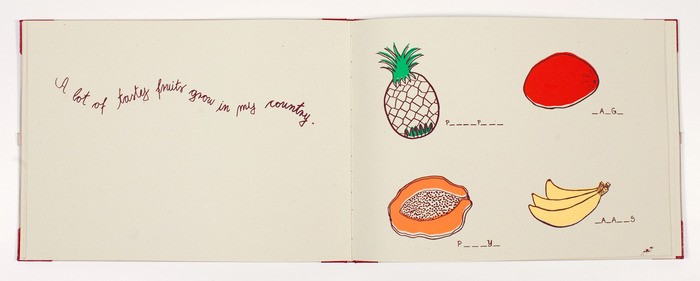 A lot of tasty fruits grow in my country.
P____P___
_A_G_
P___Y_
_A_A__S